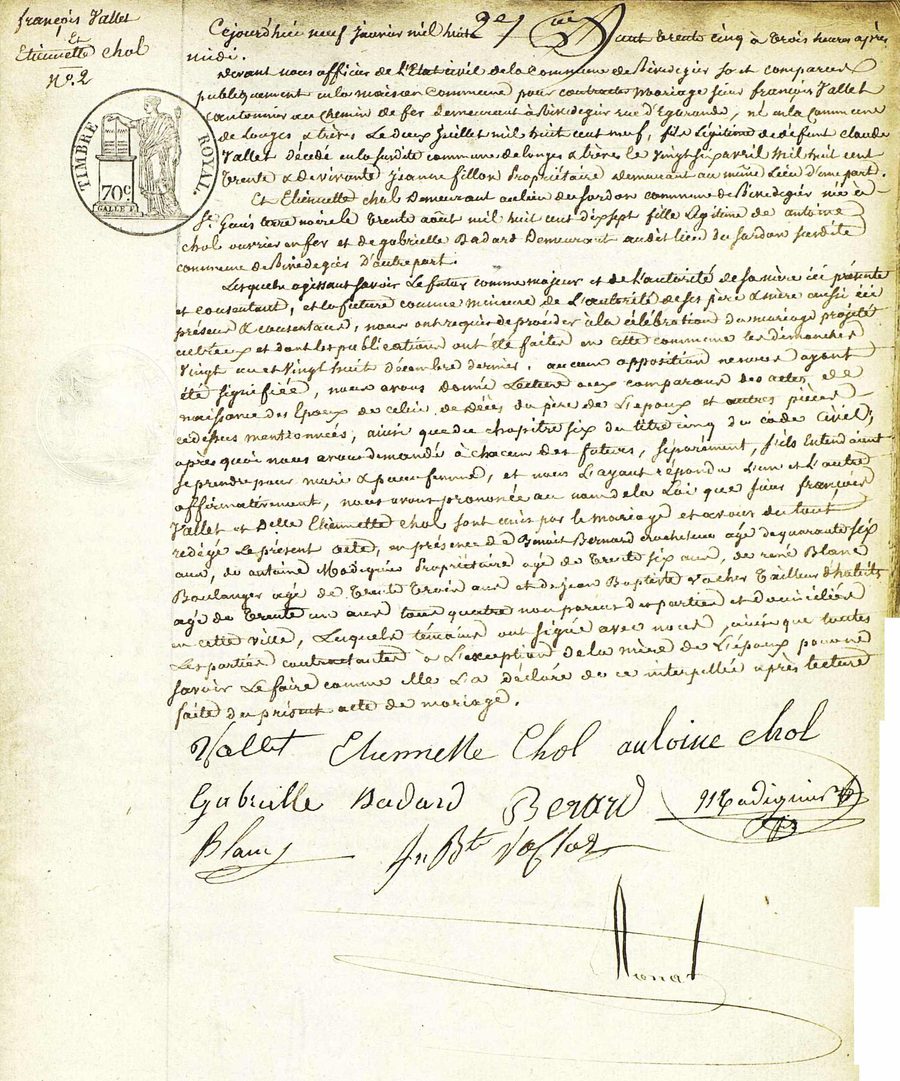 françois Vallet
Et
Etiennette Chol
N.º 2
TIMBRE ROYAL.
70c
Cejourd'hui neuf janvier mil huit cent trente cinq à trois heures après
midi.
devant nous officier de l'Etat civil de la commune de Rivedegier sont comparus
publiquement en la maison commune pour contracter mariage sieur françois Vallet
cantonnier au chemin de fer demeurant à Rivedegier rue d'Egarande, né en la commune
de Longes & trèves le deux juillet mil huit cent neuf, fils légitime de defunt claude
Vallet décédé en la susdite commune de longes & trèves le vingt six avril mil huit cent
trente & de vivante jeanne fillon Propriétaire demeurant au même lieu d'une part.
Et Etiennette chol demeurant au lieu du Sardon commune de Rivedegier née à
St. Genis terre noire le trente août mil huit cent dix sept fille légitime de antoine
chol ouvrier en fer et de gabrielle Badard demeurant audit lieu du Sardon susdite
commune de Rivedegier d'autre part.
Lesquels agissant savoir le futur comme majeur et de l'autorité de sa mère ici présente
et consentant, et la future comme mineure de l'autorité de ses père & mère aussi ici
présens & consentans, nous ont requis de procéder à la célébration du mariage projeté
entreeux et dont les publications ont été faites en cette commune les dimanches
vingt un et vingt huit décembre dernier. aucune opposition ne nous ayant
été signifiée, nous avons donné lecture aux comparans des actes de
naissance des Epoux de celui de décès du père de l'époux et autres pièces
cidessus mentionnées, ainsi que du chapitre six du titre cinq du code civil,
après quoi nous avons demandé à chacun des futurs, séparément, s'ils entendaient
se prendre pour mari & pour femme, et nous l'ayant répondu l'un et l'autre
affirmativement, nous avons prononcé au nom de la Loi que sieur françois
Vallet et Delle Etiennette chol sont unis par le mariage et avons du tout
redigé le présent acte, en présence de Benoit Bernard agé de quarante six
ans, de antoine Madignier Propriétaire agé de trente six ans, de rené Blanc
Boulanger agé de trente trois ans et de jean Baptiste vacher tailleur d'habits
agé de trente un ans tous quatre non parens des parties et domiciliés
en cette ville, lesquels témoins ont signé avec nous, ainsi que toutes
les parties contractantes à l'exception de la mère de l'époux pour ne
savoir le faire comme elle l'a déclaré de ce interpellée après lecture
faite du présent acte de mariage.
Vallet Etiennette Chol antoine chol
Gabrielle Badard Berard Madignier
Blanc Jn Bte